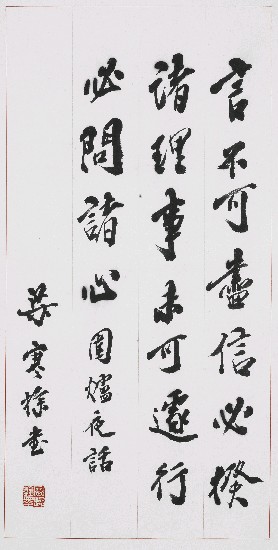 言不可盡信必揆
諸理事未可遽行
必問諸心 圍爐夜話
梁寒操書